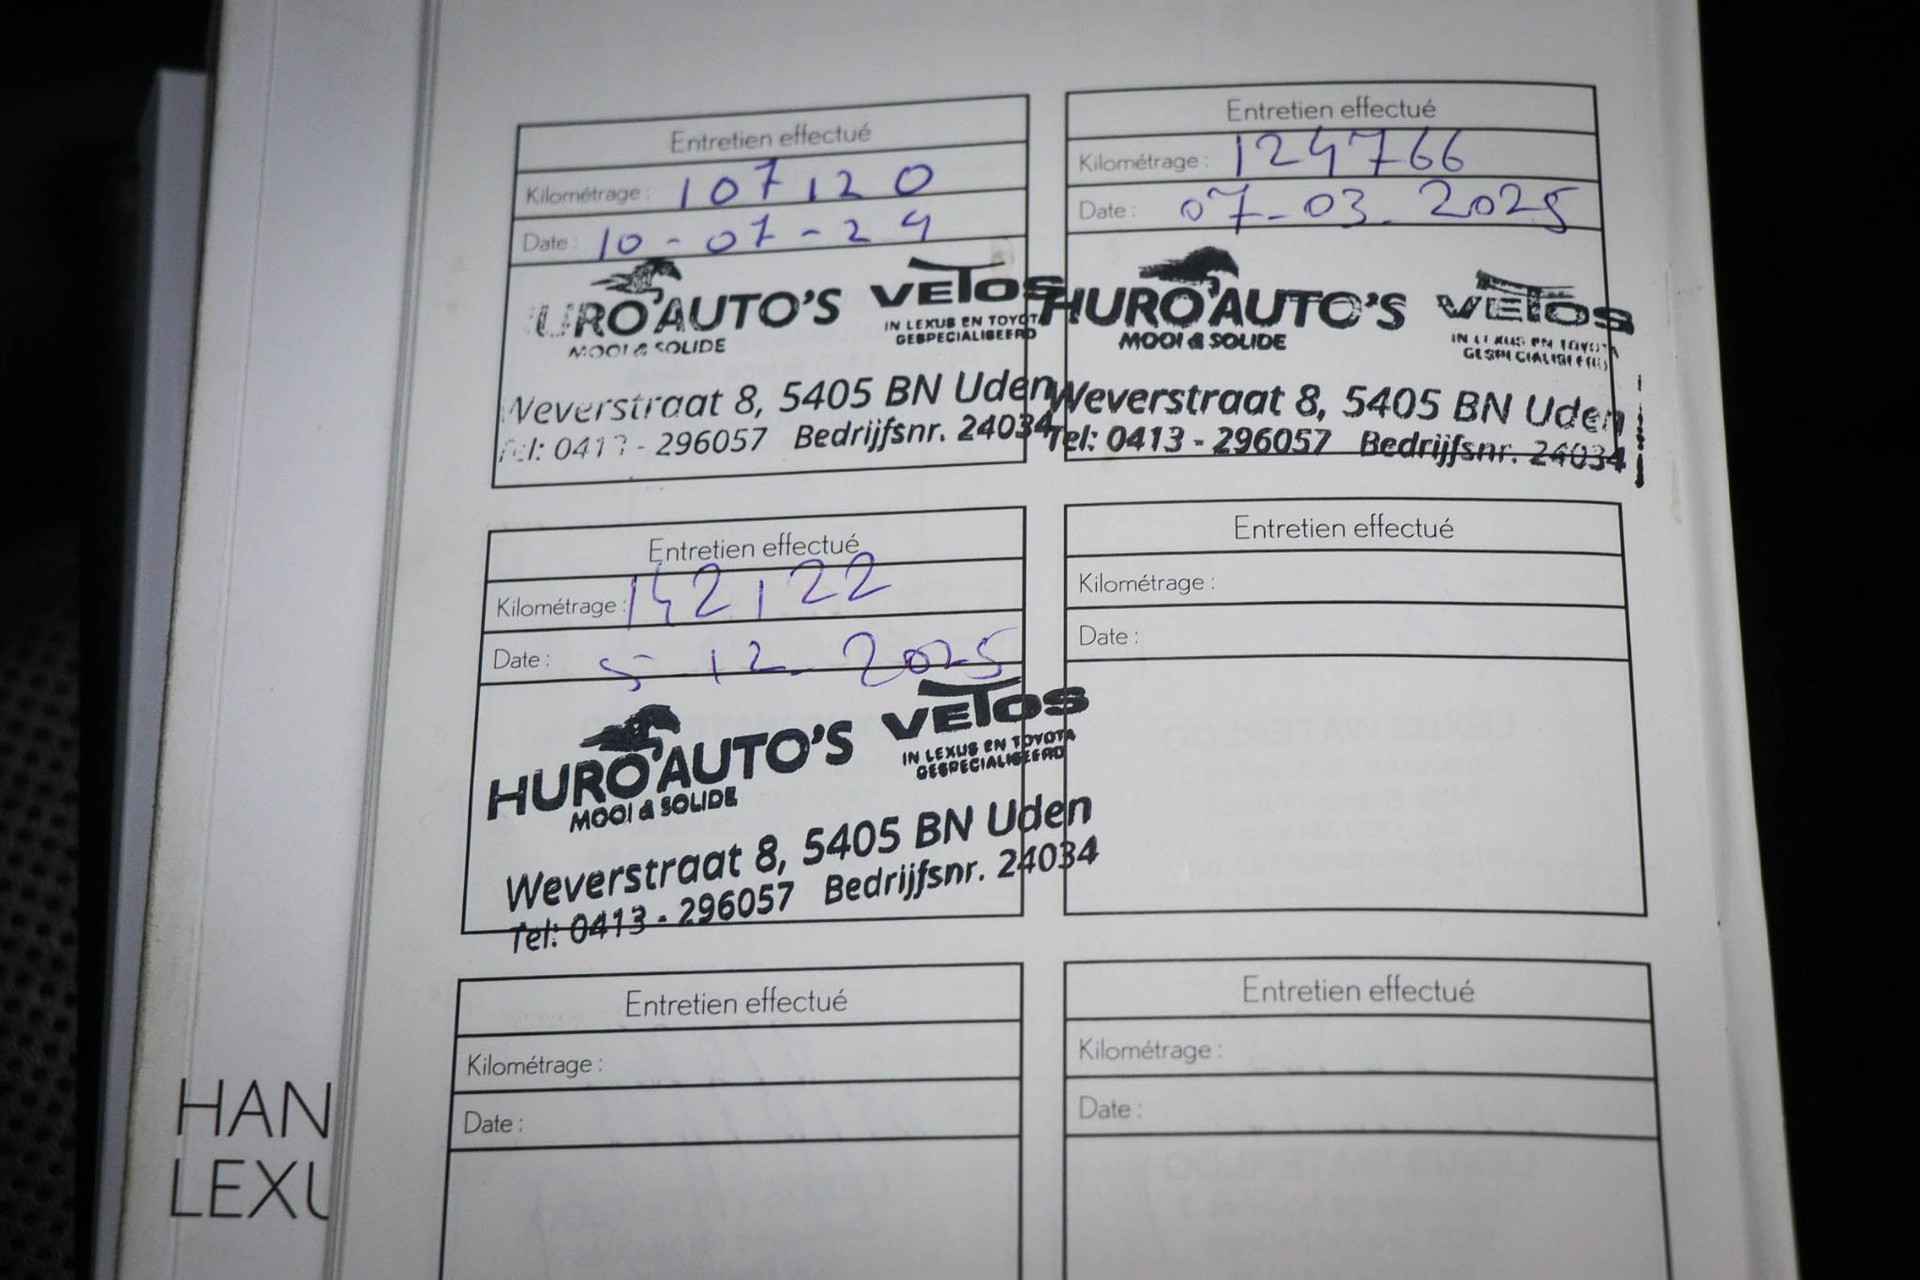 Entretien effectué
Kilométrage : 107120
Date : 10-07-24
URO AUTO'S VETOS
MOOI & SOLIDE IN LEXUS EN TOYOTA
GESPECIALISEERD
Weverstraat 8, 5405 BN Uden
Tel: 0413 - 296057 Bedrijfsnr. 24034
Entretien effectué
Kilométrage : 124766
Date : 07-03-2025
HURO AUTO'S VETOS
MOOI & SOLIDE IN LEXUS EN TOYOTA
GESPECIALISEERD
Weverstraat 8, 5405 BN Uden
Tel: 0413 - 296057 Bedrijfsnr. 24034
Entretien effectué
Kilométrage : 142122
Date : 5-12-2025
HURO AUTO'S VETOS
MOOI & SOLIDE IN LEXUS EN TOYOTA
GESPECIALISEERD
Weverstraat 8, 5405 BN Uden
Tel: 0413 - 296057 Bedrijfsnr. 24034
Entretien effectué
Kilométrage :
Date :
Entretien effectué
Kilométrage :
Date :
Entretien effectué
Kilométrage :
Date :
HAN
LEXU